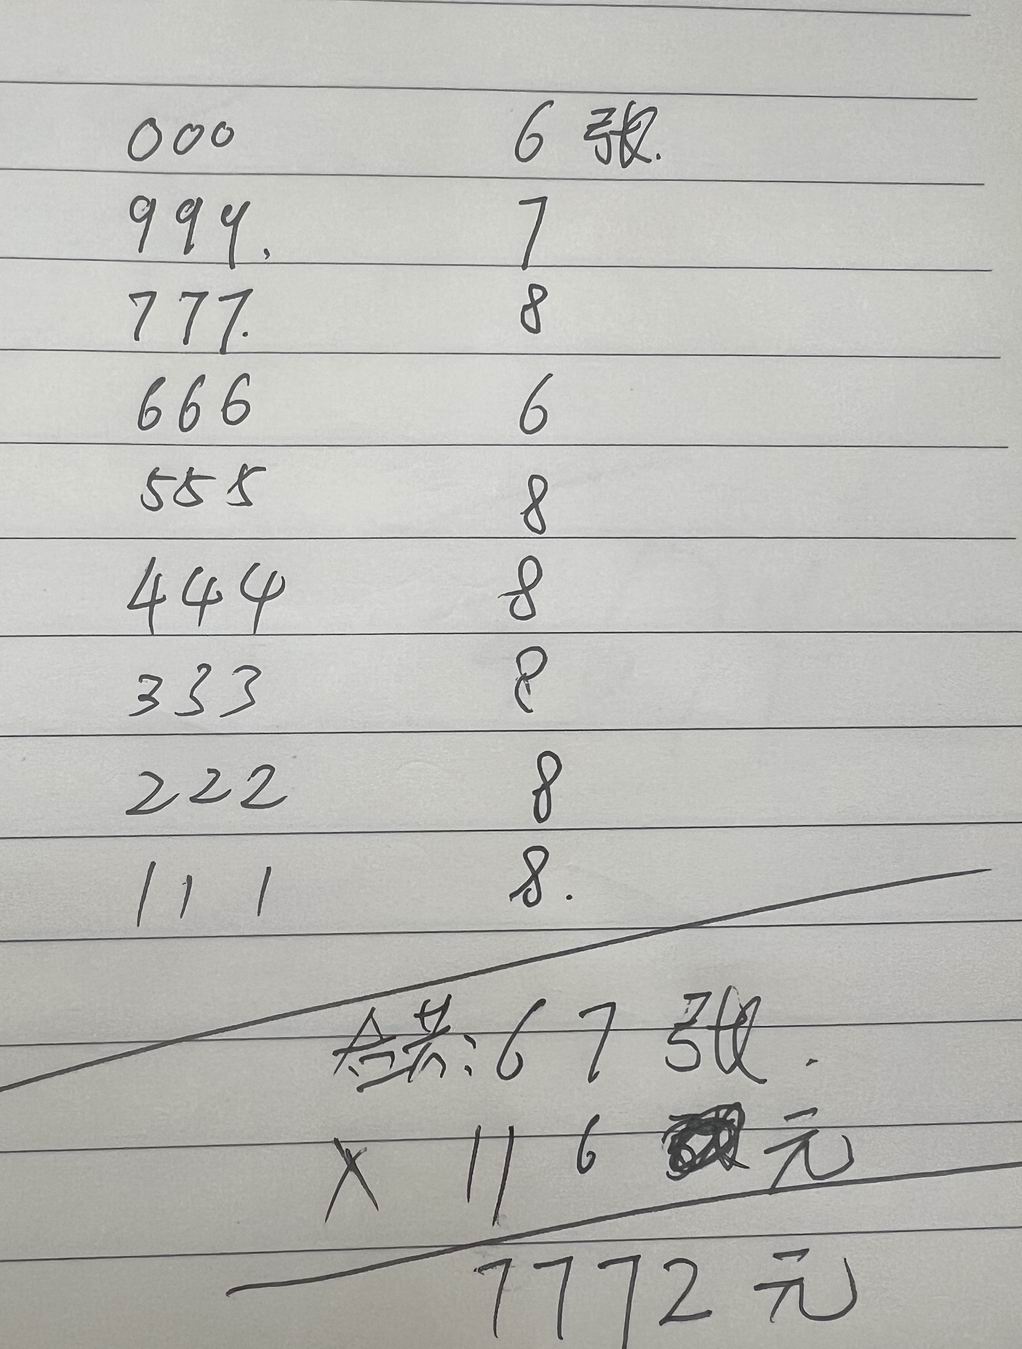 000 6 张.
999. 7
777. 8
666 6
555 8
444 8
333 8
222 8
111 8.
合共: 67 张.
X 116 元
7772 元